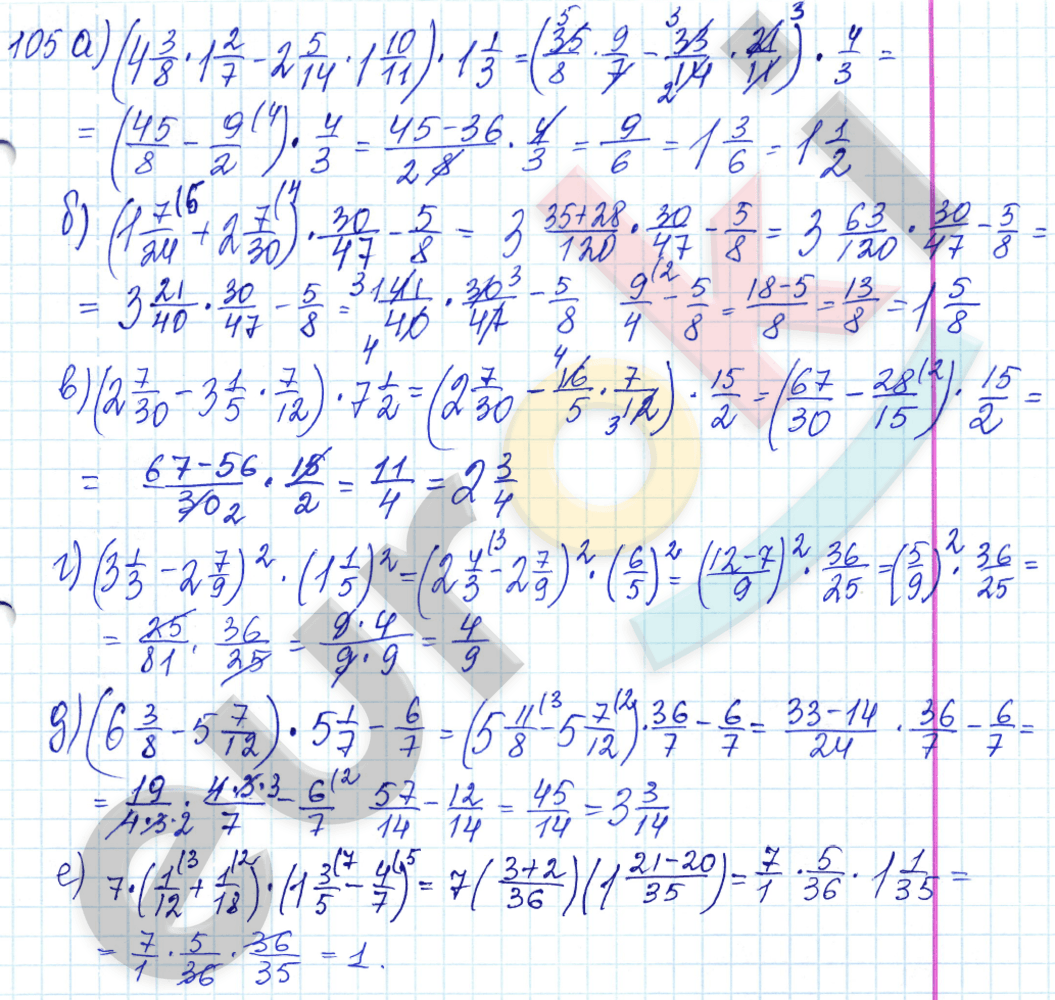 105 а) (4 3/8 · 1 2/7 − 2 5/14 · 1 10/11) · 1 1/3 = (35/8 · 9/7 − 33/14 · 21/11) · 4/3 =
= (45/8 − 9/2 (4) · 4/3 = 45−36/2 8 · 4/3 = 9/6 = 1 3/6 = 1 1/2
б) (1 7/24 (5 + 2 7/30 (4) · 30/47 − 5/8 = 3 35+28/120 · 30/47 − 5/8 = 3 63/120 · 30/47 − 5/8 =
= 3 21/40 · 30/47 − 5/8 = 3 141/40 4 · 30/47 3 − 5/8 9/4 (2 − 5/8 = 18−5/8 = 13/8 = 1 5/8
в) (2 7/30 − 3 1/5 · 7/12) · 7 1/2 = (2 7/30 − 4 16/5 · 7/12 3) · 15/2 = (67/30 − 28/15 (2) · 15/2 =
= 67−56/30 2 · 15/2 = 11/4 = 2 3/4
г) (3 1/3 − 2 7/9)² · (1 1/5)² = (2 4/3 (3 − 2 7/9)² · (6/5)² = (12−7/9)² · 36/25 = (5/9)² · 36/25 =
= 25/81 · 36/25 = 9·4/9·9 = 4/9
д) (6 3/8 − 5 7/12) · 5 1/7 − 6/7 = (5 11/8 (3 − 5 7/12 (2) · 36/7 − 6/7 = 33−14/24 · 36/7 − 6/7 =
= 19/4·3·2 · 4·3·3/7 − 6/7 (2 57/14 − 12/14 = 45/14 = 3 3/14
е) 7 · (1/12 (3 + 1/18 (2) · (1 3/5 (7 − 4/7 (5) = 7 (3+2/36) (1 21−20/35) = 7/1 · 5/36 · 1 1/35 =
= 7/1 · 5/36 · 36/35 = 1.
euroki